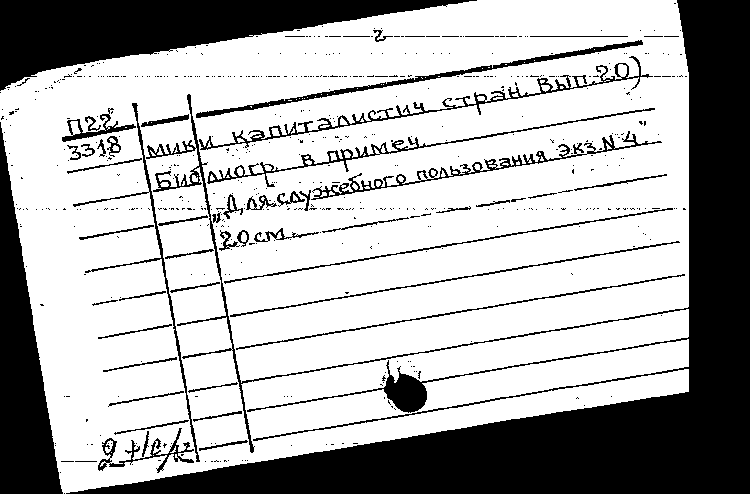 2
П22
3318
мики капиталистич. стран. Вып. 20)
Библиогр. в примеч.
„Для служебного пользования экз. N 4".
20 см.